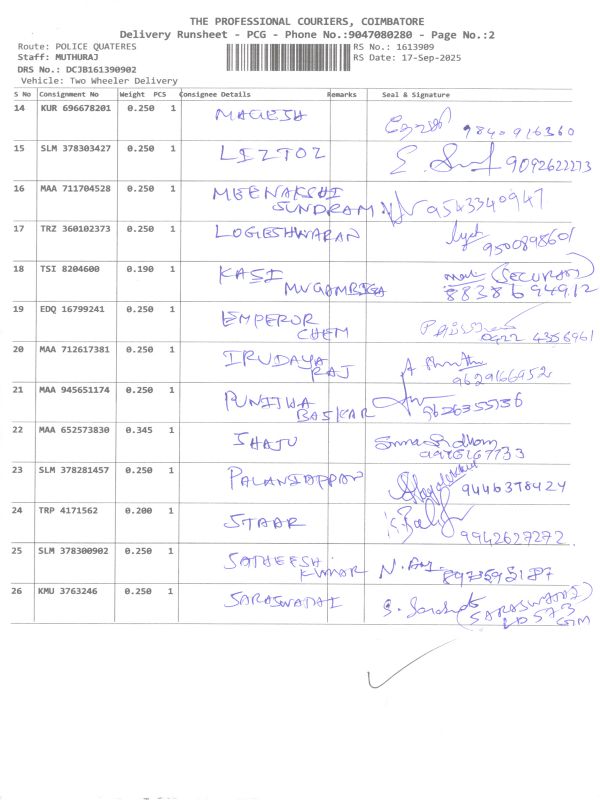 THE PROFESSIONAL COURIERS, COIMBATORE
Delivery Runsheet - PCG - Phone No.:9047080280 - Page No.:2
Route: POLICE QUATERES RS No.: 1613909
Staff: MUTHURAJ RS Date: 17-Sep-2025
DRS No.: DCJB161390902
Vehicle: Two Wheeler Delivery
S No Consignment No Weight PCS Consignee Details Remarks Seal & Signature
14 KUR 696678201 0.250 1 MAGESH 9840916360
15 SLM 378303427 0.250 1 LIZTOZ 9092622273
16 MAA 711704528 0.250 1 MEENAKSHI
SUNDRAM 9543340947
17 TRZ 360102373 0.250 1 LOGESHWARAN
9500898601
18 TSI 8204600 0.190 1 KASI (SECURITY)
MUGAMBIGA 8838694912
19 EDQ 16799241 0.250 1 EMPEROR
CHEM 0422 4356961
20 MAA 712617381 0.250 1 IRUDAYA
RAJ 9629166952
21 MAA 945651174 0.250 1 PUNITHA
BASKAR 9626355736
22 MAA 652573830 0.345 1 SHAJU
23 SLM 378281457 0.250 1 PALANIAPPAN 9446378424
24 TRP 4171562 0.200 1 STAAR
9942627272
25 SLM 378300902 0.250 1 SATHEESH
KUMAR
26 KMU 3763246 0.250 1 SARASWATHI (SARASWATHI)